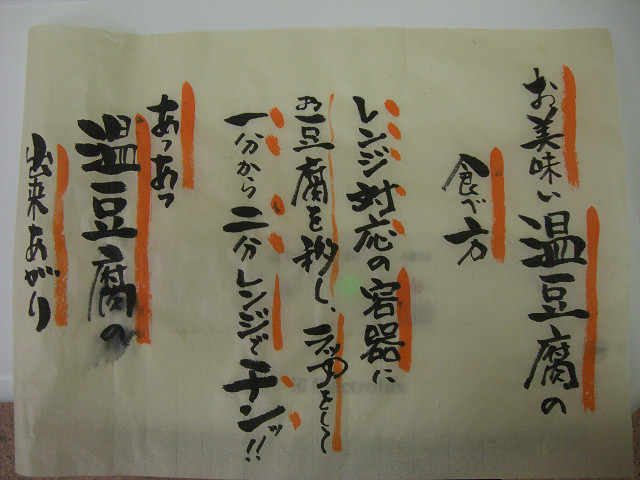 お美味い温豆腐の
食べ方
レンジ対応の容器に
お豆腐を移し、ラップをして
一分から二分レンジでチンッ!!
あつあつ
温豆腐の
出来あがり